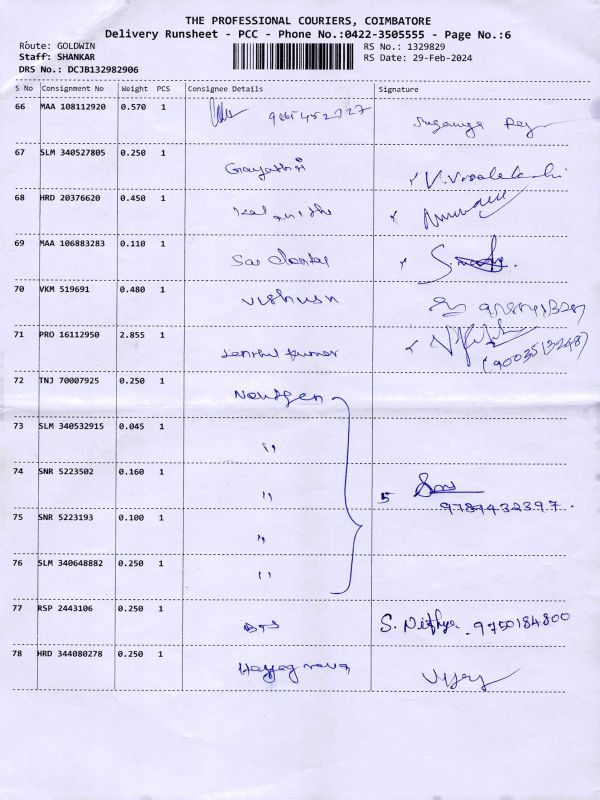 THE PROFESSIONAL COURIERS, COIMBATORE
Delivery Runsheet - PCC - Phone No.:0422-3505555 - Page No.:6
Route: GOLDWIN
RS No.: 1329829
Staff: SHANKAR
RS Date: 29-Feb-2024
DRS No.: DCJB132982906
S No Consignment No Weight PCS Consignee Details Signature
66 MAA 108112920 0.570 1
67 SLM 340527805 0.250 1 Gayathri
68 HRD 20376620 0.450 1
69 MAA 106883283 0.110 1 Sai
70 VKM 519691 0.480 1 Vishnu
71 PRO 16112950 2.855 1 Senthil Kumar (9003513248)
72 TNJ 70007925 0.250 1
73 SLM 340532915 0.045 1 ,,
74 SNR 5223502 0.160 1 ,, 5
9789432397.
75 SNR 5223193 0.100 1 ,,
76 SLM 340648882 0.250 1 ,,
77 RSP 2443106 0.250 1 S. Nithya. 9750184800
78 HRD 344080278 0.250 1 Vijay